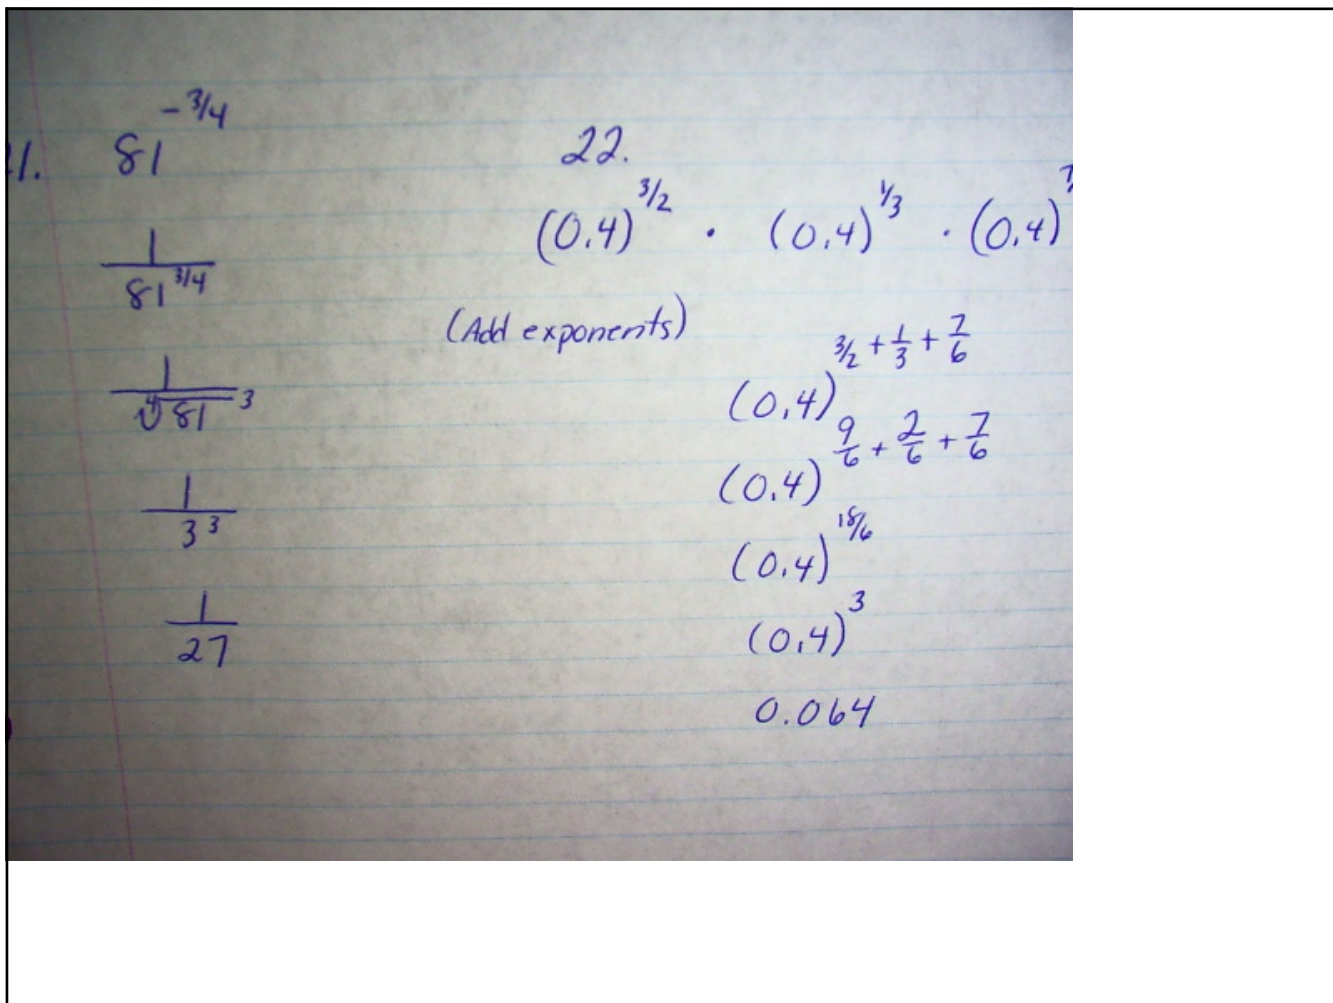 1. 81^{-3/4}
\frac{1}{81^{3/4}}
\frac{1}{\sqrt[4]{81}^3}
\frac{1}{3^3}
\frac{1}{27}
22.
(0.4)^{3/2} · (0.4)^{1/3} · (0.4)
(Add exponents)
(0.4)^{3/2 + \frac{1}{3} + \frac{7}{6}}
(0.4)^{\frac{9}{6} + \frac{2}{6} + \frac{7}{6}}
(0.4)^{18/6}
(0.4)^3
0.064